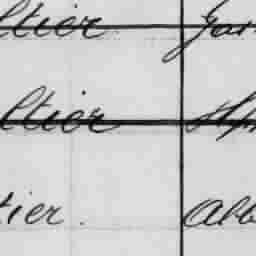 ltier Gar
ltier
tier. Alb